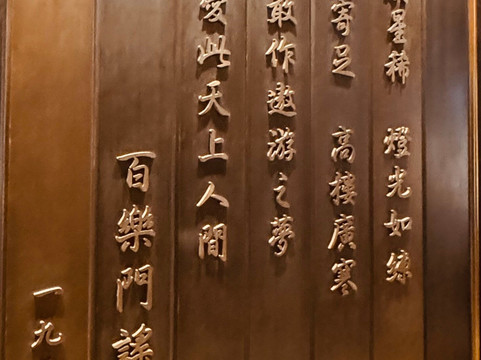 星稀 燈光如綠
寄足 高樓廣寒
敢作遨游之夢
愛此天上人間
百樂門謠
一九